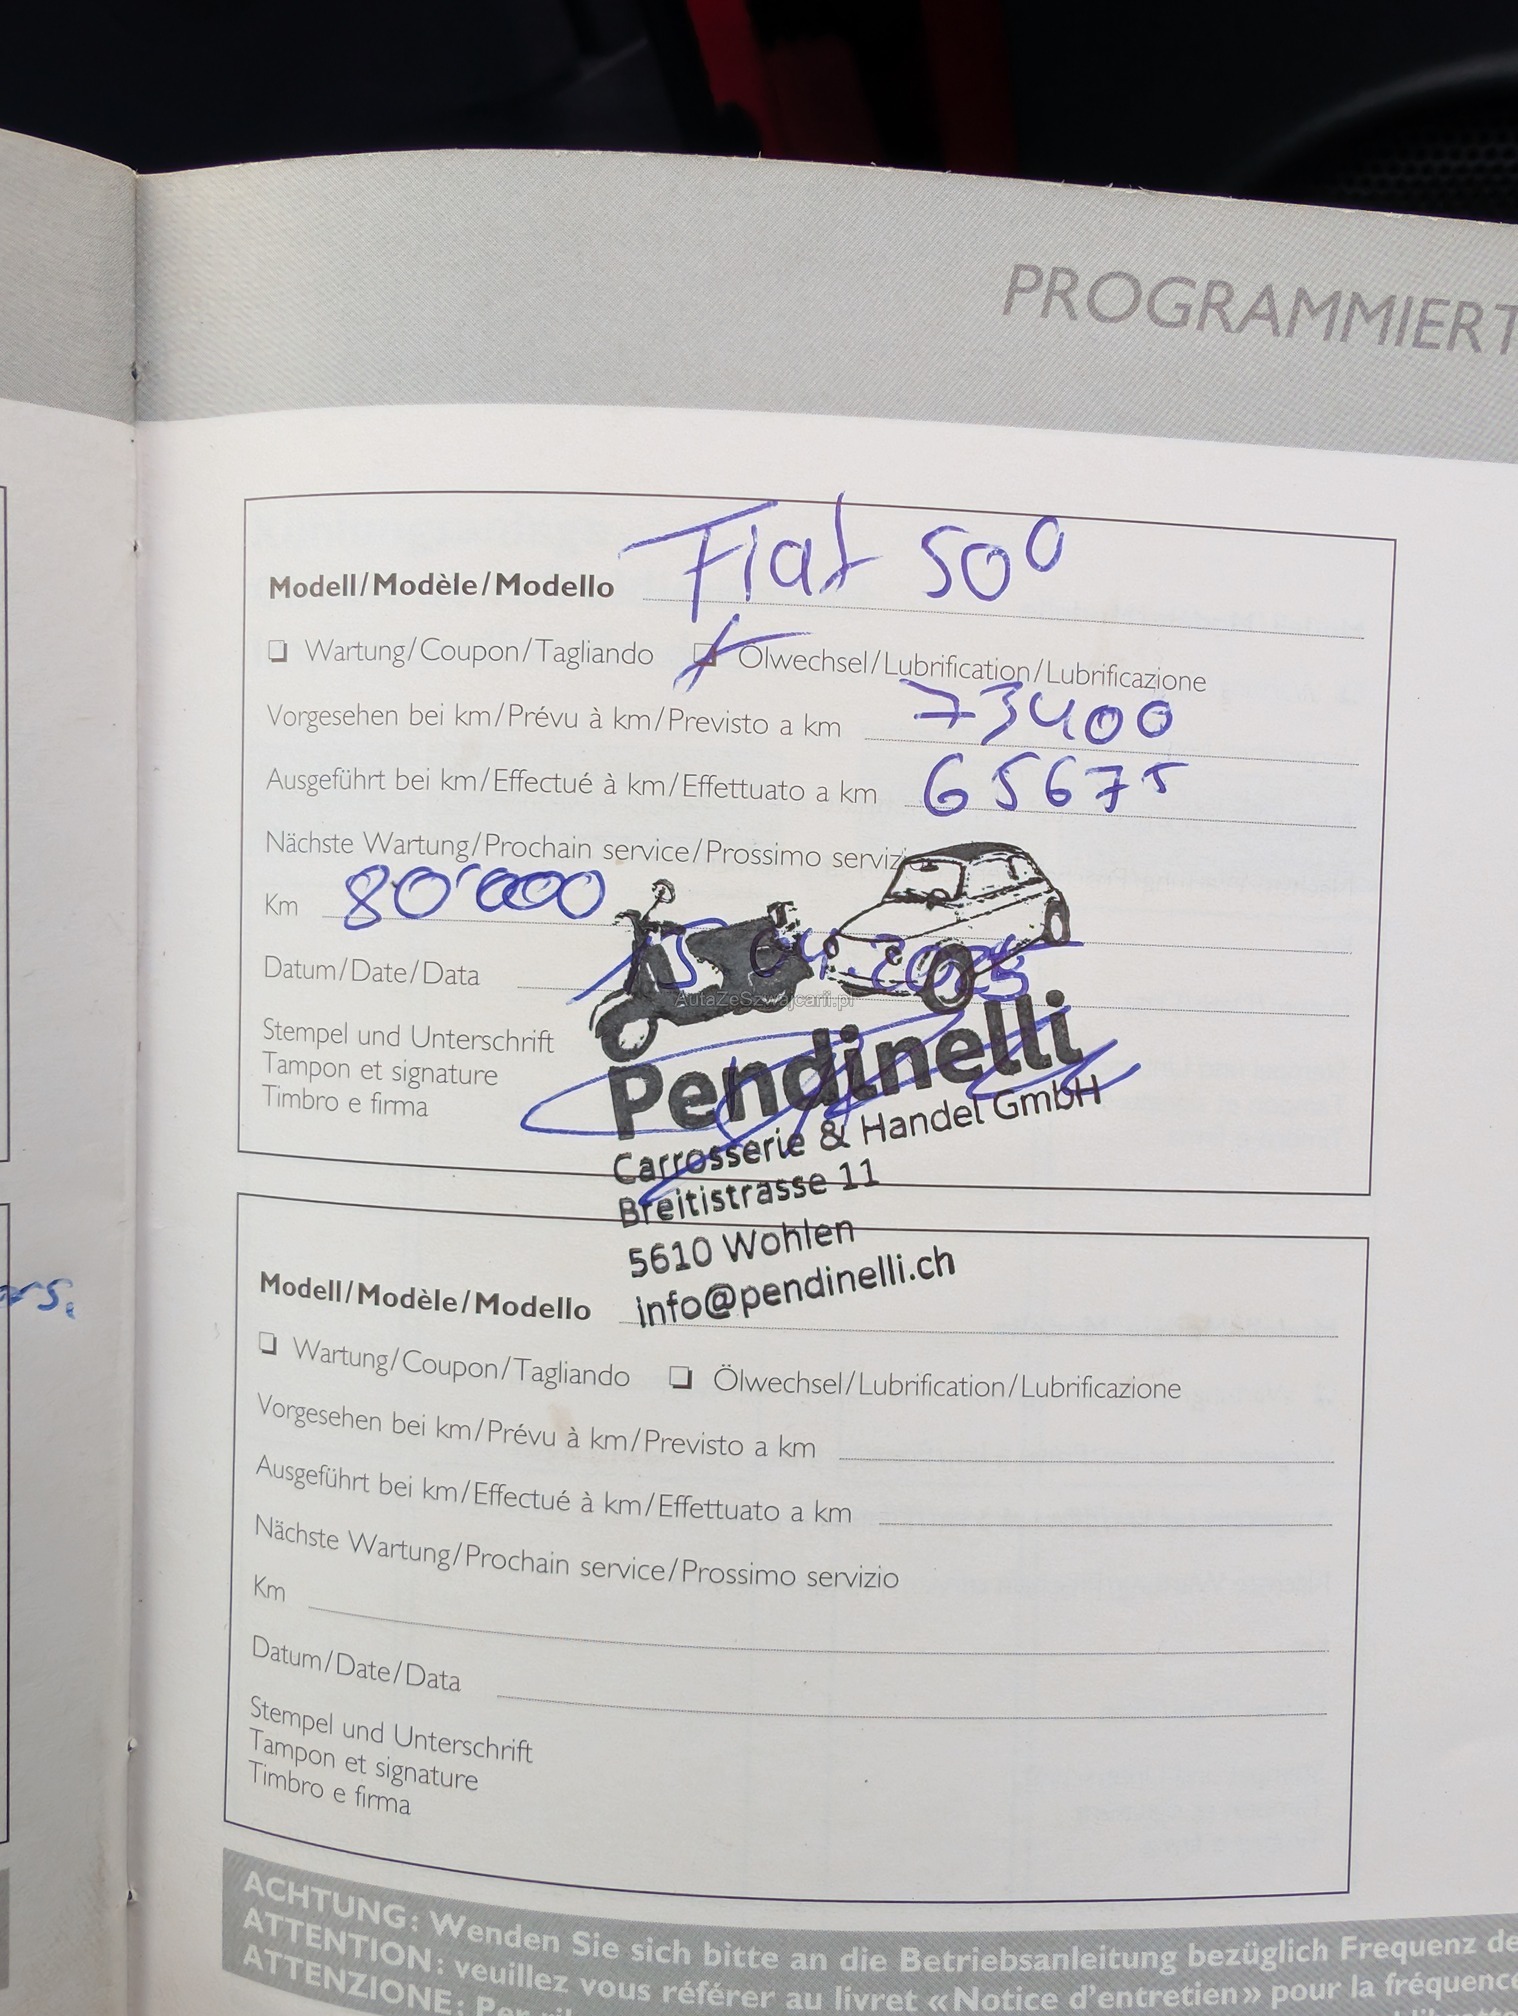 PROGRAMMIERT
Modell/Modèle/Modello Fiat 500
Wartung/Coupon/Tagliando Ölwechsel/Lubrification/Lubrificazione
Vorgesehen bei km/Prévu à km/Previsto a km 73400
Ausgeführt bei km/Effectué à km/Effettuato a km 65675
Nächste Wartung/Prochain service/Prossimo servizio
Km 80'000
Datum/Date/Data 15.04.2025
AutaZeSzwajcarii.pl
Stempel und Unterschrift
Tampon et signature
Timbro e firma
Pendinelli
Carrosserie & Handel GmbH
Breitistrasse 11
5610 Wohlen
info@pendinelli.ch
ars.
Modell/Modèle/Modello
Wartung/Coupon/Tagliando Ölwechsel/Lubrification/Lubrificazione
Vorgesehen bei km/Prévu à km/Previsto a km
Ausgeführt bei km/Effectué à km/Effettuato a km
Nächste Wartung/Prochain service/Prossimo servizio
Km
Datum/Date/Data
Stempel und Unterschrift
Tampon et signature
Timbro e firma
ACHTUNG: Wenden Sie sich bitte an die Betriebsanleitung bezüglich Frequenz de
ATTENTION: veuillez vous référer au livret «Notice d'entretien» pour la fréquence
ATTENZIONE: Per